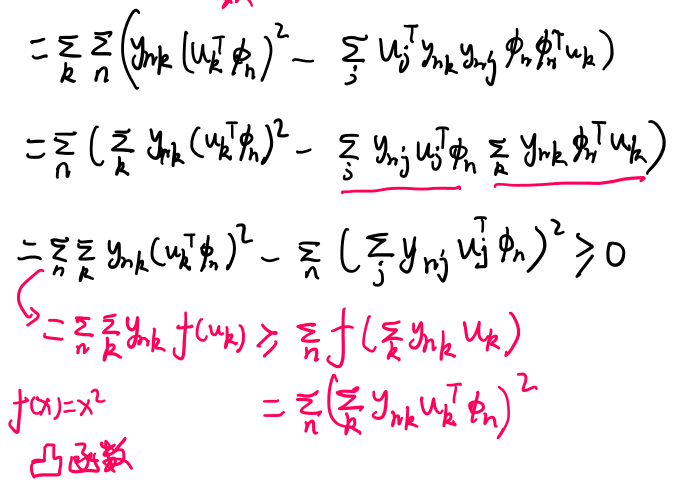 = Σ_k Σ_n ( y_nk (u_k^T φ_n)^2 − Σ_j u_j^T y_nk y_nj φ_n φ_n^T u_k )
= Σ_n ( Σ_k y_nk (u_k^T φ_n)^2 − Σ_j y_nj u_j^T φ_n Σ_k y_nk φ_n^T u_k )
= Σ_n Σ_k y_nk (u_k^T φ_n)^2 − Σ_n ( Σ_j y_nj u_j^T φ_n )^2 ⩾ 0
= Σ_n Σ_k y_nk f(u_k) ⩾ Σ_n f( Σ_k y_nk u_k )
f(x)=x^2 = Σ_n ( Σ_k y_nk u_k^T φ_n )^2
凸函数